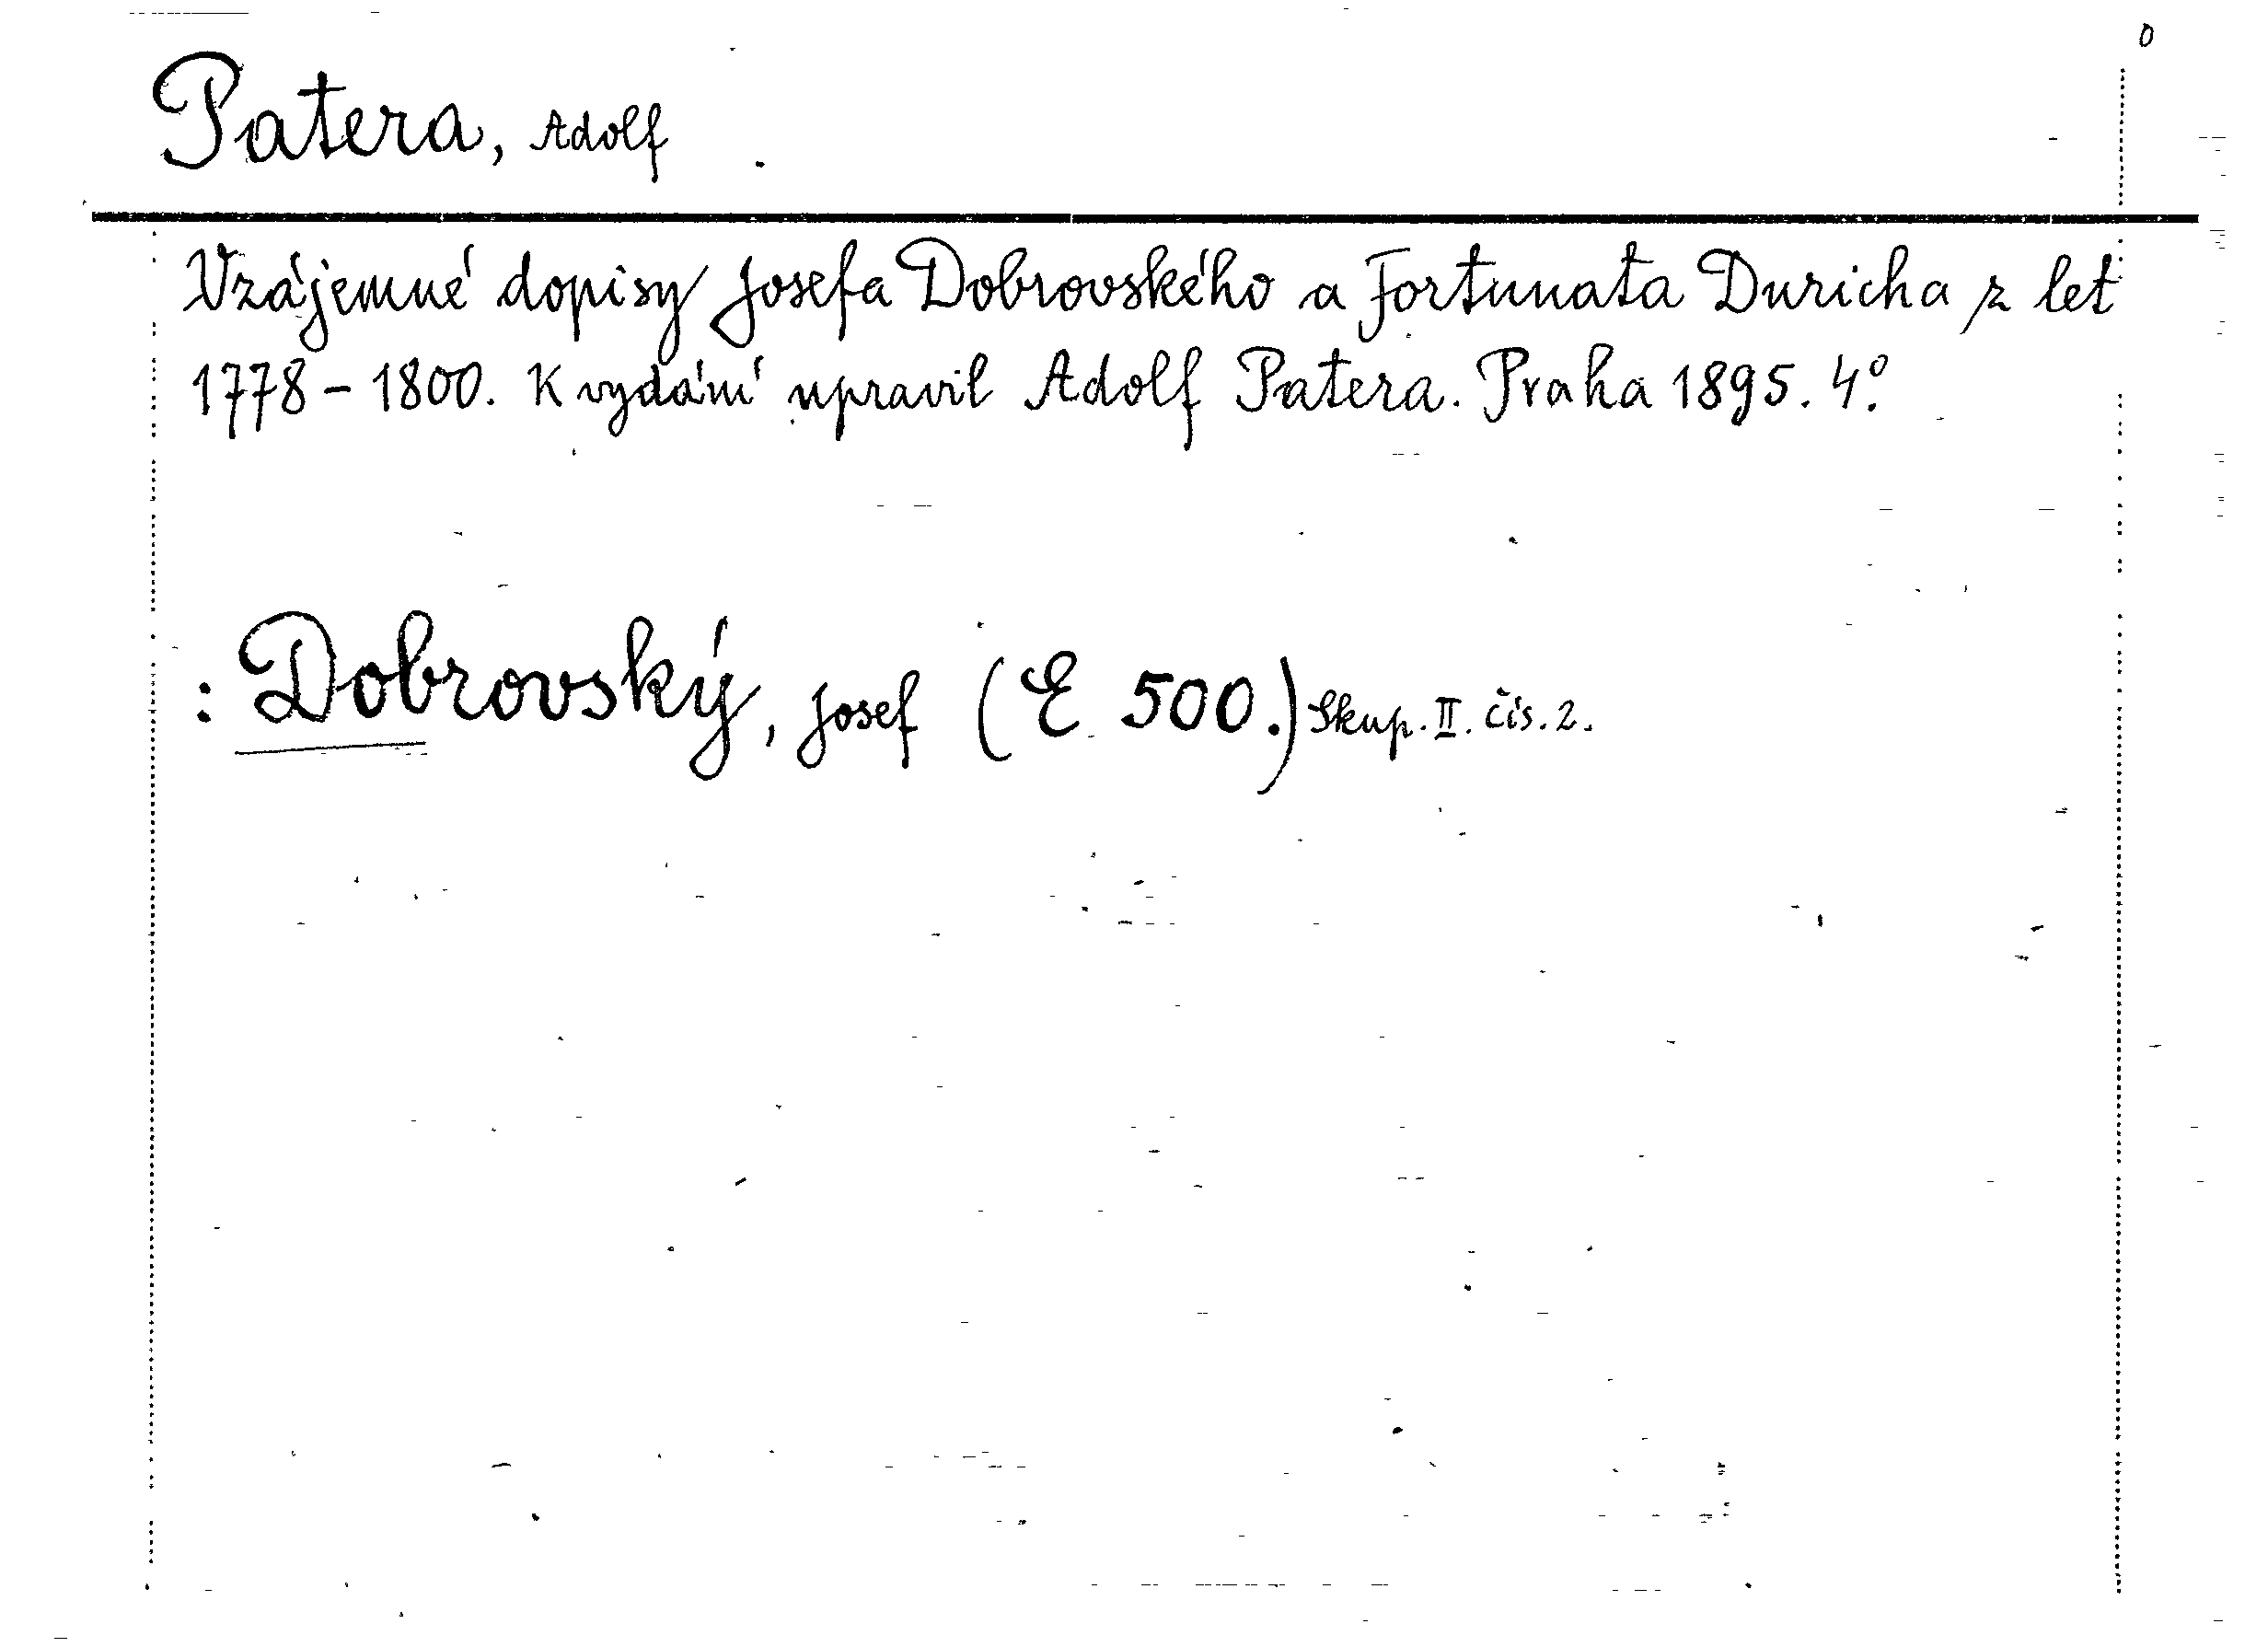 0
Patera, Adolf
Vzájemné dopisy Josefa Dobrovského a Fortunata Duricha z let
1778 – 1800. K vydání upravil Adolf Patera. Praha 1895. 4°.
: Dobrovský, Josef (E 500.) Skup. II. čís. 2.